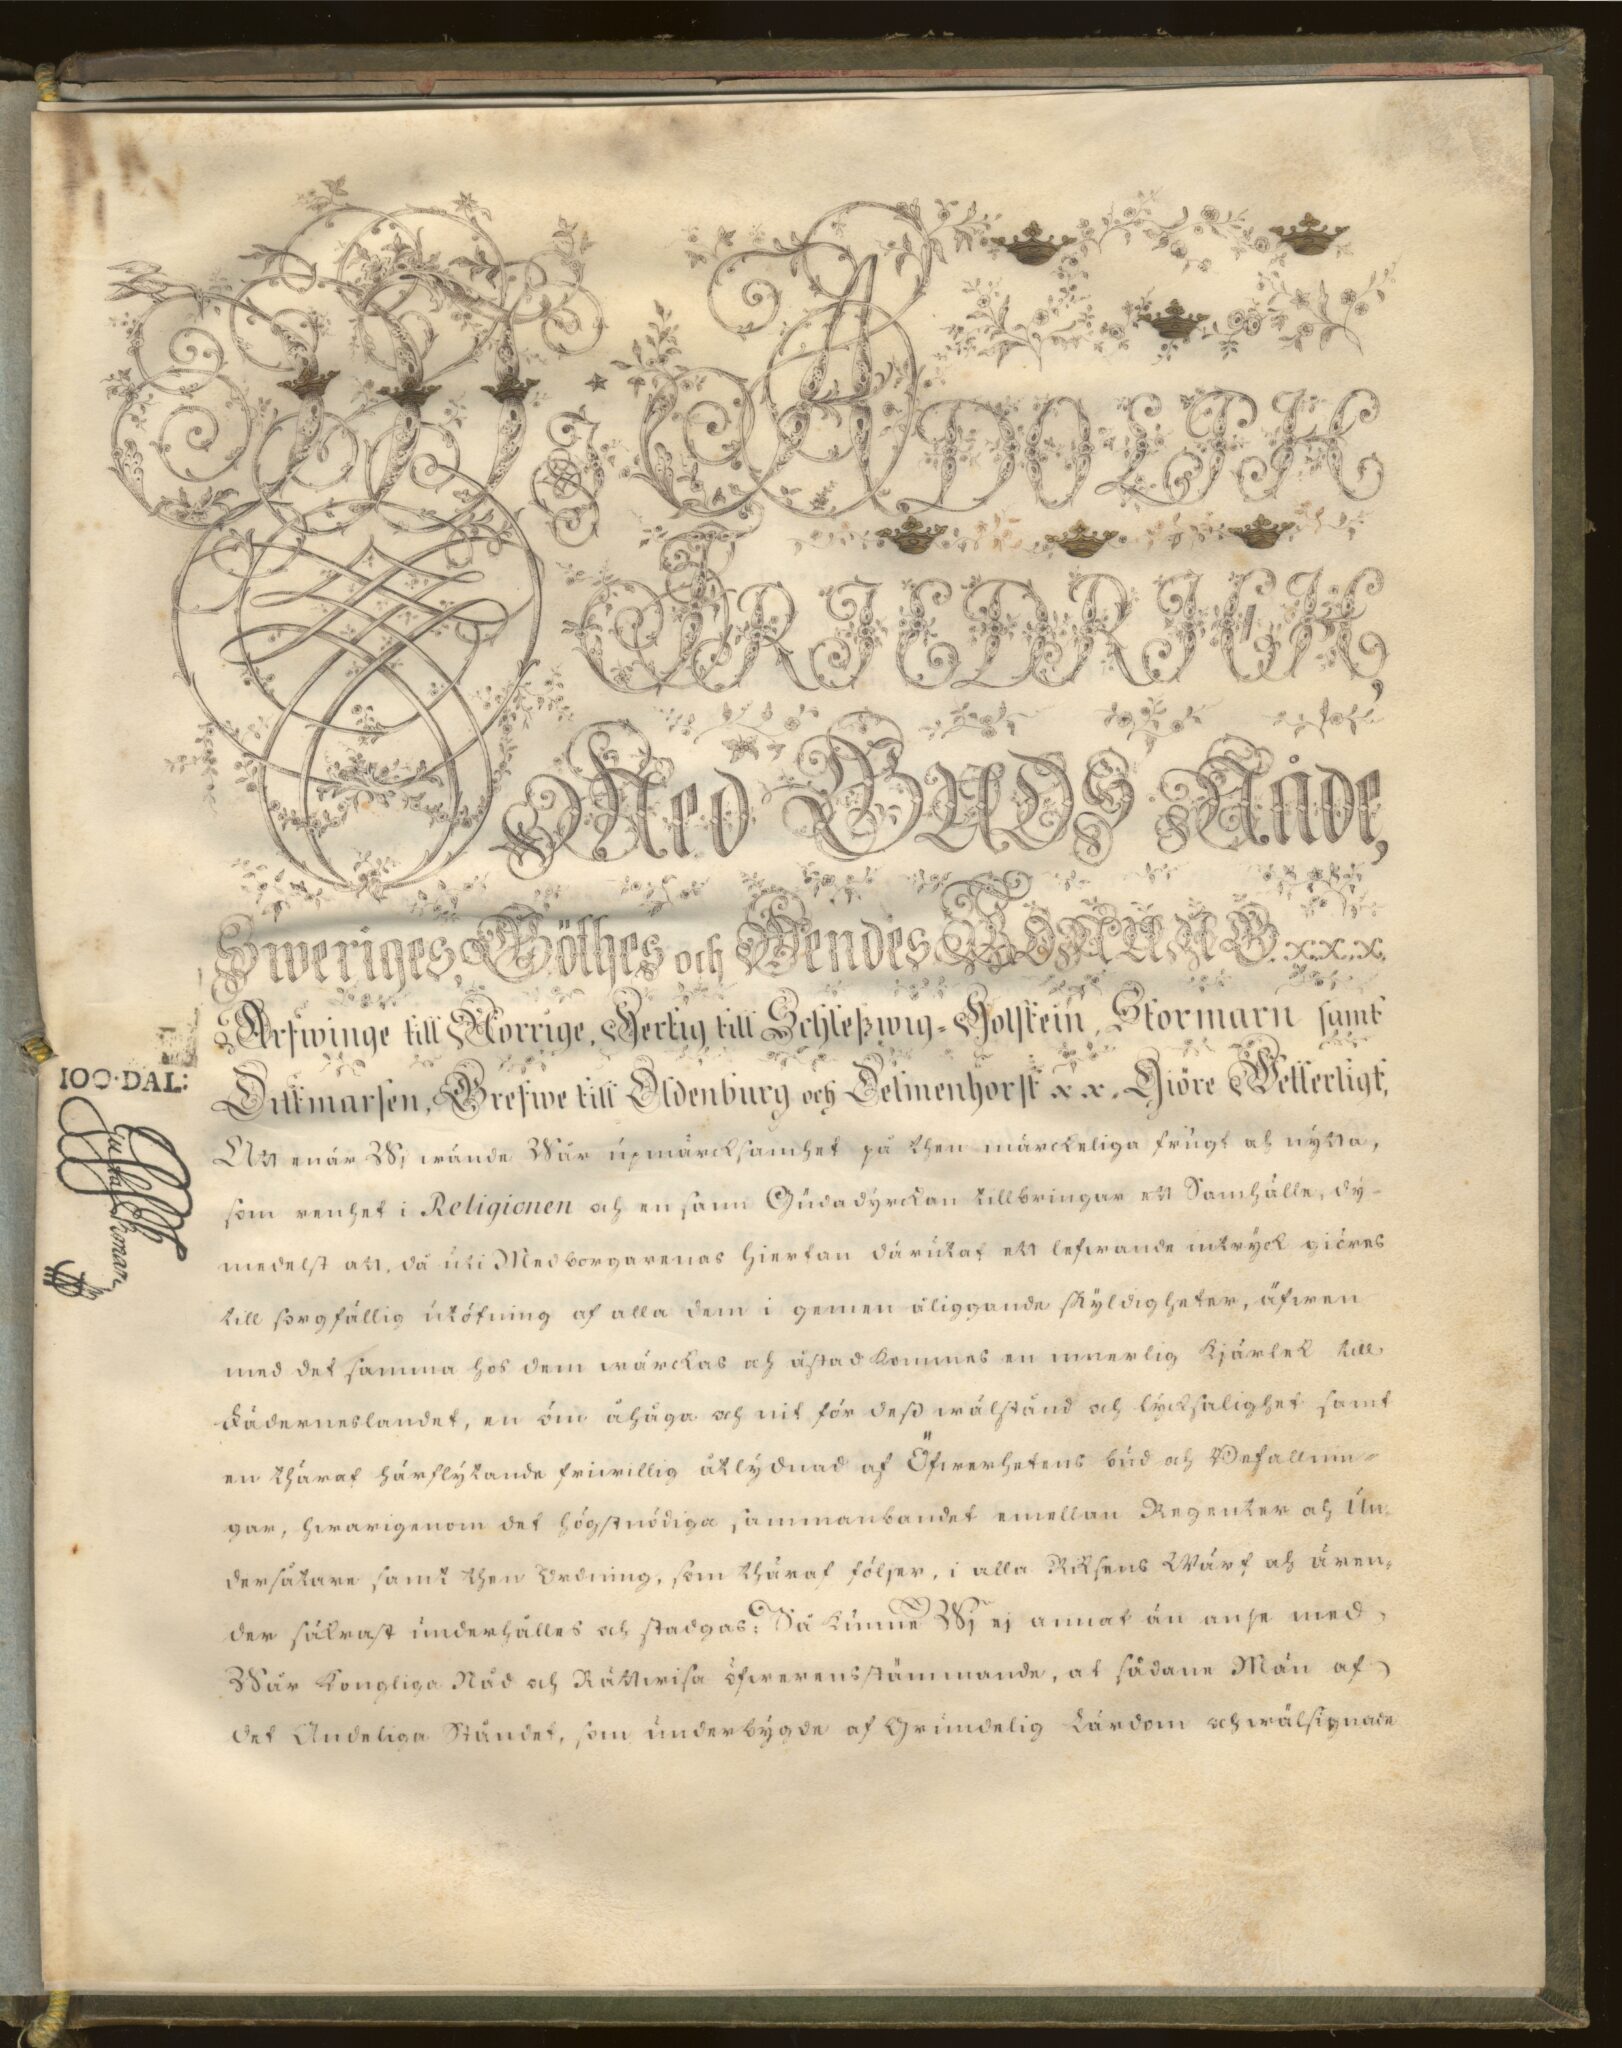 Wi ADOLPH
FRIEDRICH,
Med GUDS Nåde,
Sweriges, Göthes och Wendes KONUNG. x. x. x.
Arfwinge till Norrige, Hertig till Schleßwig-Holstein, Stormarn samt
Dittmarsen, Grefwe till Oldenburg och Delmenhorst x x. Giöre Wetterligt,
100·DAL:
Att enär Wj wände Wår upmärcksamhet på then märckeliga frugt och nytta,
som renhet i Religionen och en sann Gudadyrckan tillbringar ett Samhälle, dy-
medelst att, då uti Medborgarenas hiertan därutaf ett lefwande intryck giöres
till sorgfällig utöfning af alla dem i gemen åliggande skyldigheter, äfwen
med det samma hos dem wärckas och åstadkommes en innerlig kjärlek till
Fäderneslandet, en öm åhåga och nit för deß wälstånd och lycksalighet samt
en thäraf härflytande friwillig åtlydnad af Öfwerhetens bud och Befallnin-
gar, hwarigenom det högstnödiga sammanbandet emellan Regenter och Un-
dersåtare samt then Ordning, som thäraf följer, i alla Riksens Wärf och ären-
der säkrast underhålles och stadgas: Så kunne Wj ej annat än anse med
Wår Kongliga Nåd och Rättwisa öfwerensstämmande, at sådane Män af
det Andeliga Ståndet, som underbygde af Grundelig Lärdom och wälsignade